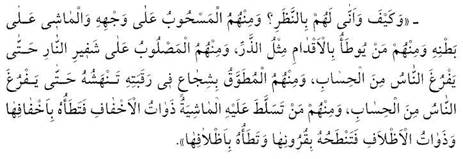 ـ «وَكَيْفَ وَاَنّٰى لَهُمْ بِالنَّظَرِ؟ وَمِنْهُمُ الْمَسْحُوبُ عَلٰى وَجْهِهِ وَالْمَاشِى عَلٰى
بَطْنِهِ وَمِنْهُمْ مَنْ يُوطَأُ بِالْاَقْدَامِ مِثْلُ الذَّرِّ، وَمِنْهُمُ الْمَصْلُوبُ عَلٰى شَفِيرِ النَّارِ حَتّٰى
يَفْرُغَ النَّاسُ مِنَ الْحِسَابِ، وَمِنْهُمُ الْمُطَوَّقُ بِشُجَاعٍ فِى رَقَبَتِهِ تَنْهَشُهُ حَتّٰى يَفْرَغَ
النَّاسُ مِنَ الْحِسَابِ، وَمِنْهُمْ مَنْ تَسَلَّطَ عَلَيْهِ الْمَاشِيَةُ ذَوَاتُ الْاَخْفَافِ فَتَطَأُهُ بِاَخْفَافِهَا
وَذَوَاتُ الْاَظْلَافِ فَتَنْطَحُهُ بِقُرُونِهَا وَتَطَأُهُ بِاَظْلَافِهَا».